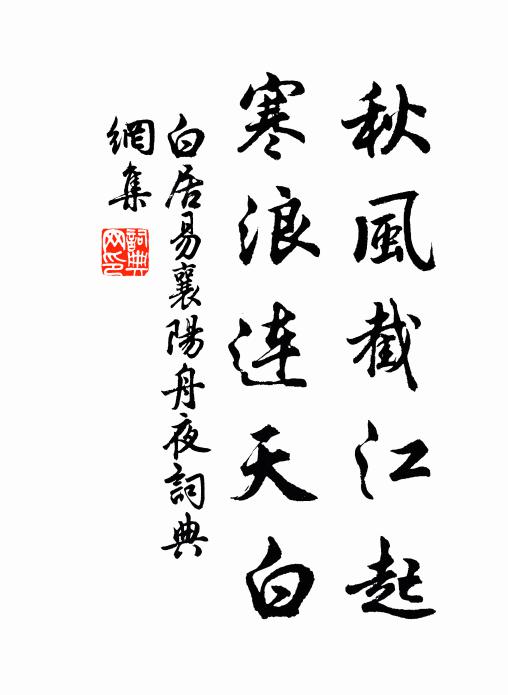 秋風截江起
寒浪連天白
白居易襄陽舟夜詞典
網集
詞典
网印